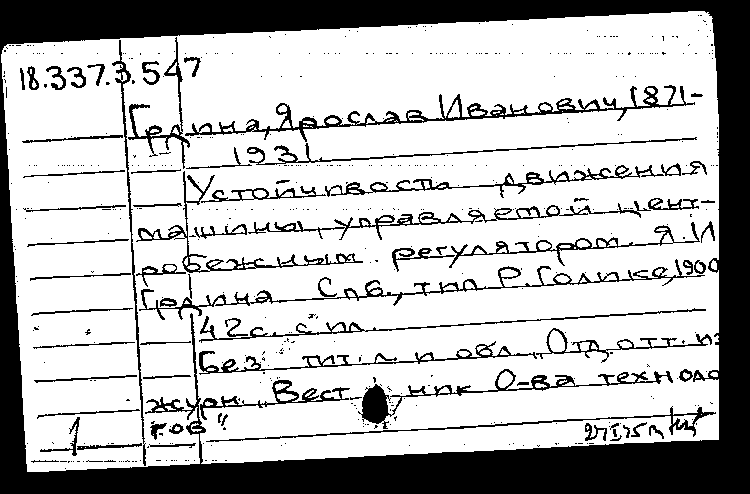 18.337.3.547
Грдина, Ярослав Иванович, 1871-
1931.
Устойчивость движения
машины, управляемой цент-
робежным регулятором. Я.И
Грдина Спб., тип Р. Голике, 1900
42 с. с ил.
Без тит. л. и обл. „Отд. отт. из
журн. „Вестник О-ва техноло
гов"
1